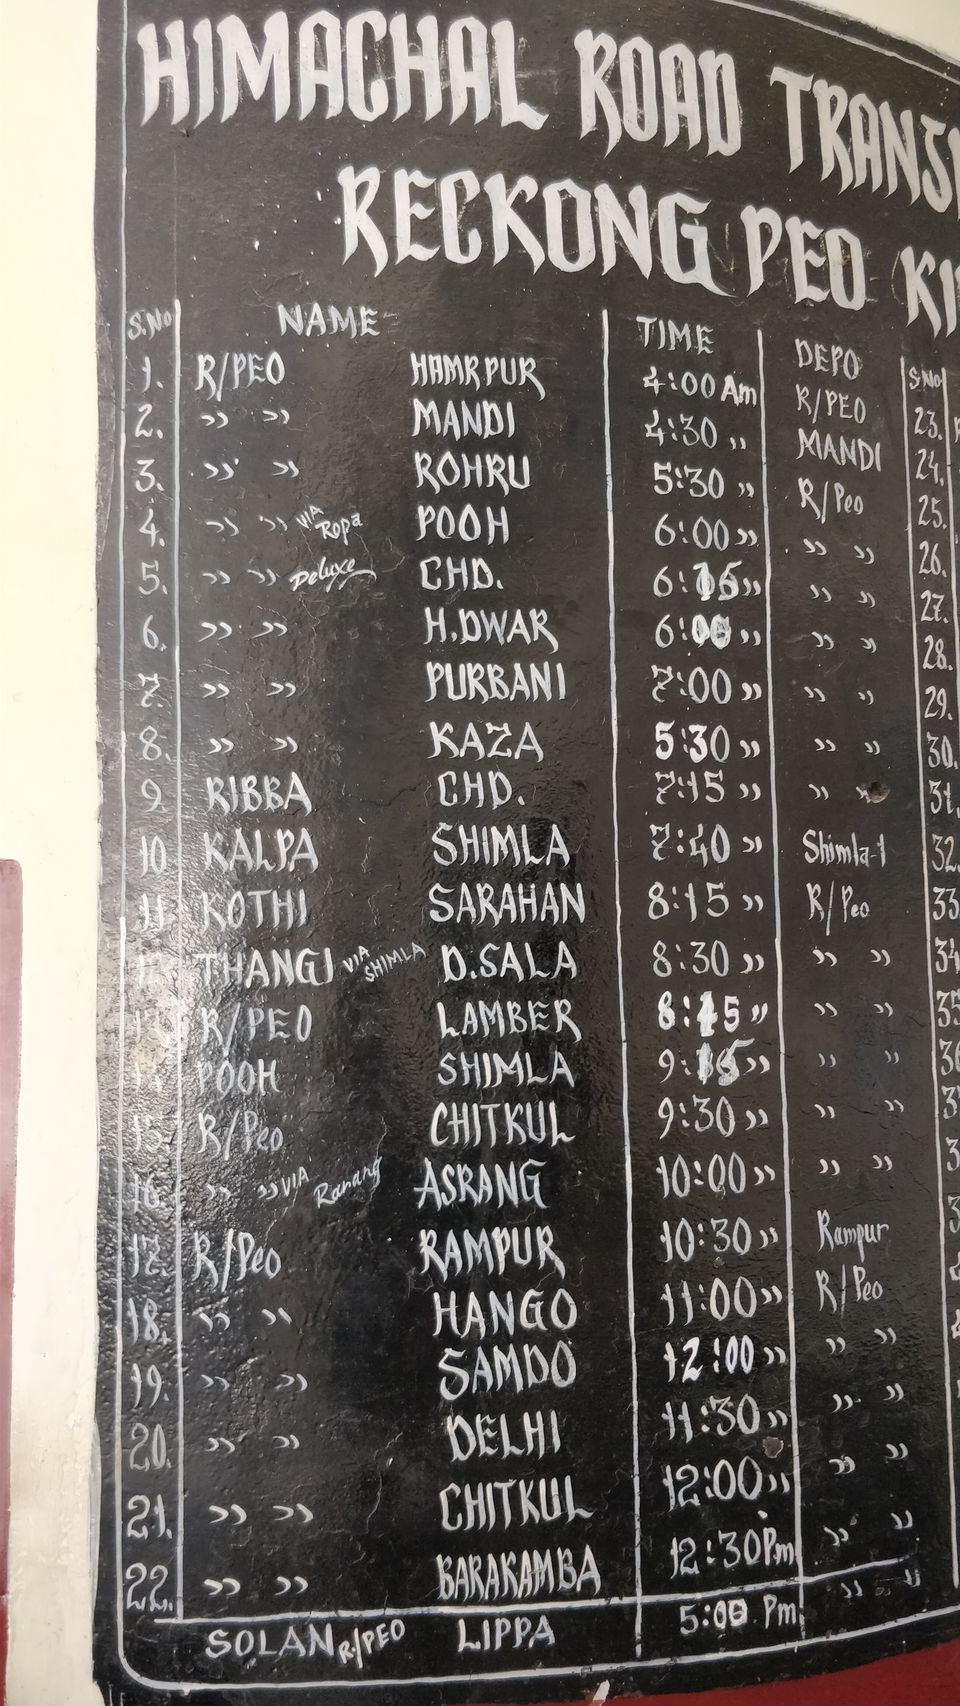 HIMACHAL ROAD TRANS
RECKONG PEO KI
S.No NAME TIME DEPO S.No
1. R/PEO HAMRPUR 4:00 Am R/PEO 23.
2. ,, ,, MANDI 4:30 ,, MANDI 24.
3. ,, ,, ROHRU 5:30 ,, R/Peo 25.
4. ,, ,, VIA Ropa POOH 6:00 ,, ,, ,, 26.
5. ,, ,, Deluxe CHD. 6:15 ,, ,, ,, 27.
6. ,, ,, H.DWAR 6:00 ,, ,, ,, 28.
7. ,, ,, PURBANI 7:00 ,, ,, ,, 29.
8. ,, ,, KAZA 5:30 ,, ,, ,, 30.
9. RIBBA CHD. 7:15 ,, ,, ,, 31.
10 KALPA SHIMLA 7:40 ,, Shimla-1 32.
11 KOTHI SARAHAN 8:15 ,, R/Peo 33
12 THANGI VIA SHIMLA D.SALA 8:30 ,, ,, ,, 34
R/PEO LAMBER 8:45 ,, ,, ,, 35
POOH SHIMLA 9:15 ,, ,, ,, 36
15. R/Peo CHITKUL 9:30 ,, ,, ,, 37
16. ,, ,, VIA Rarang ASRANG 10:00 ,, ,, ,, 3
17. R/Peo RAMPUR 10:30 ,, Rampur 3
18. ,, ,, HANGO 11:00 ,, R/Peo
19. ,, ,, SAMDO 12:00 ,, ,, ,,
20. ,, ,, DELHI 11:30 ,, ,, ,,
21. ,, ,, CHITKUL 12:00 ,, ,, ,,
22. ,, ,, BARAKAMBA 12:30 Pm ,, ,,
SOLAN R/PEO LIPPA 5:00 Pm ,, ,,